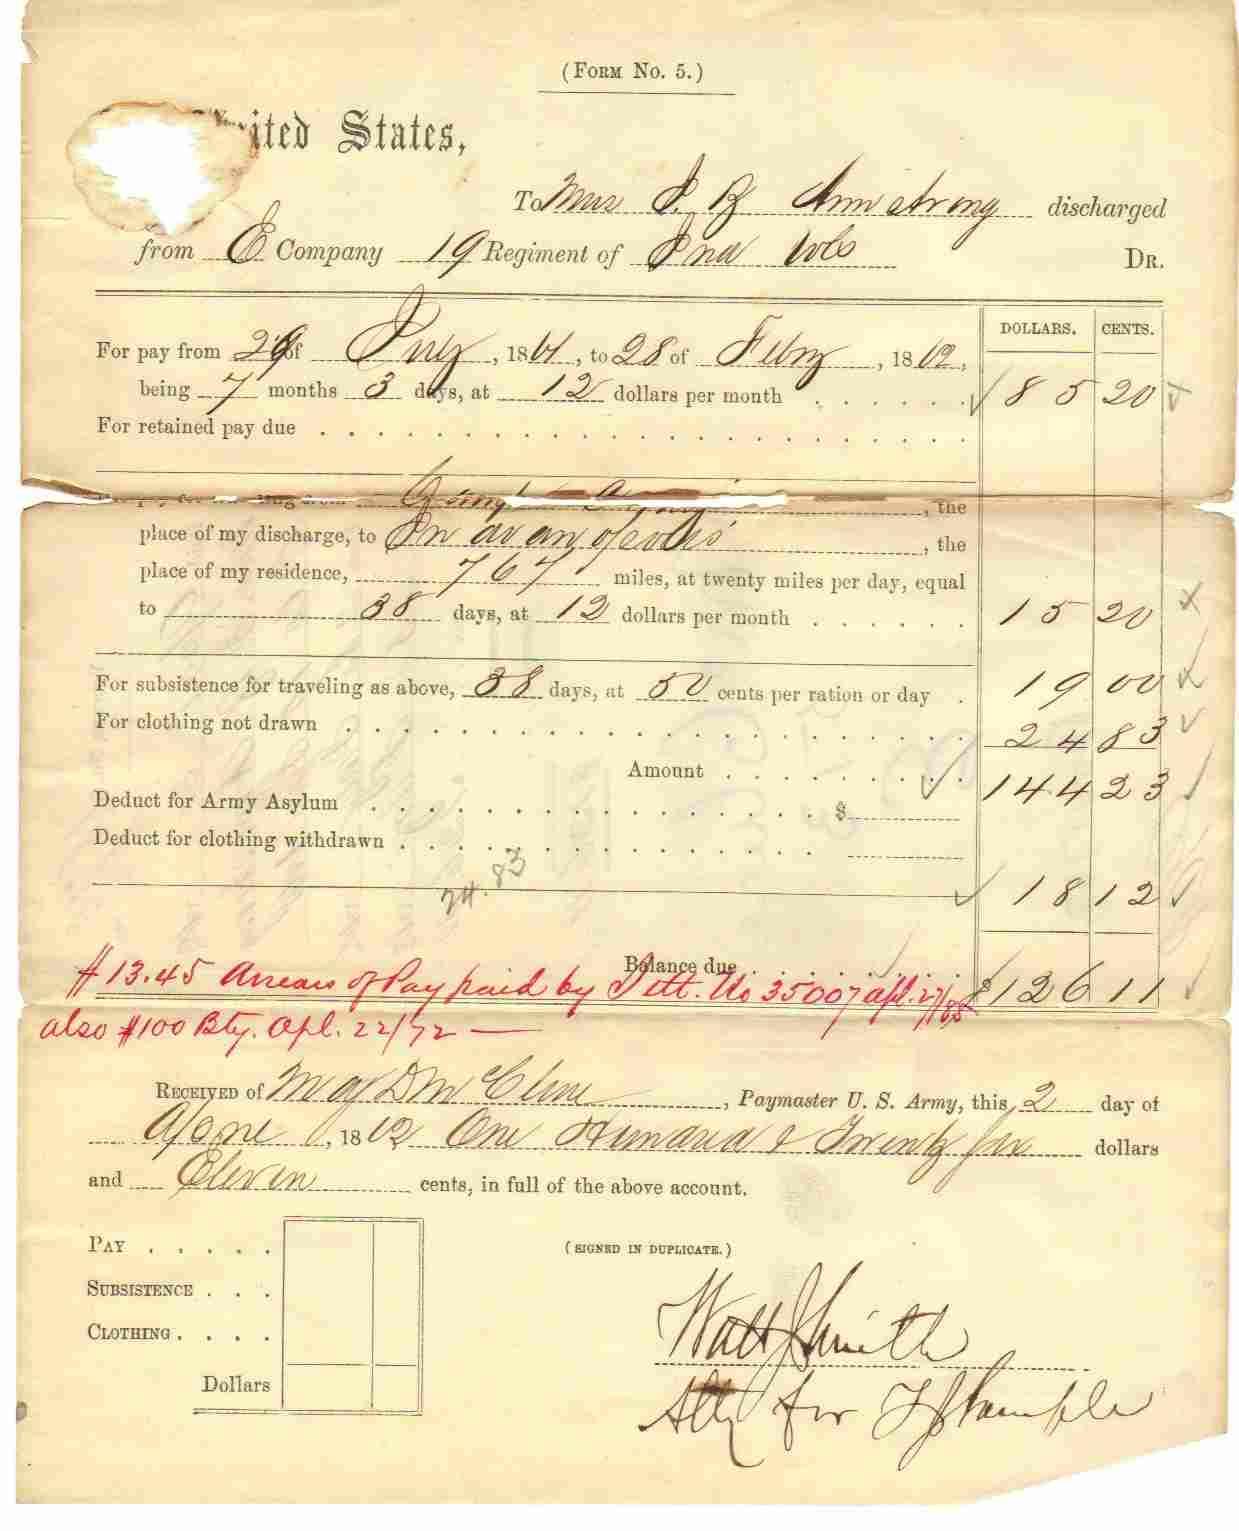 (FORM NO. 5.)
United States,
To Mrs J. B Armstrong discharged
from E Company 19 Regiment of Ind Vols DR.
DOLLARS. CENTS.
For pay from 29 of July, 1861, to 28 of Febry, 1862,
being 7 months 3 days, at 12 dollars per month . . . . . . 85 20
For retained pay due . . . . . . . . . . . . . . . . . . .
, the
place of my discharge, to , the
place of my residence, 767 miles, at twenty miles per day, equal
to 38 days, at 12 dollars per month . . . . . . 15 20
For subsistence for traveling as above, 38 days, at 50 cents per ration or day . 19 00
For clothing not drawn . . . . . . . . . . . . . . . . . . 24 83
Amount . . . . . . . 144 23
Deduct for Army Asylum . . . . . . . . . . . . . . $
Deduct for clothing withdrawn . . . . . . . . . . . . .
24.83
18 12
Balance due . . . . . . . $126 11
$13.45 Arrears of Pay paid by Sett. No 35007 Apl. 27/85
also $100 Bty. Apl. 22/72 —
RECEIVED of Maj D McClure, Paymaster U. S. Army, this 2 day of
June, 1862 One Hundred & Twenty six dollars
and Eleven cents, in full of the above account.
PAY . . . . .
(SIGNED IN DUPLICATE.)
SUBSISTENCE . . .
CLOTHING . . . .
Dollars
Watt J Smith
Atty for